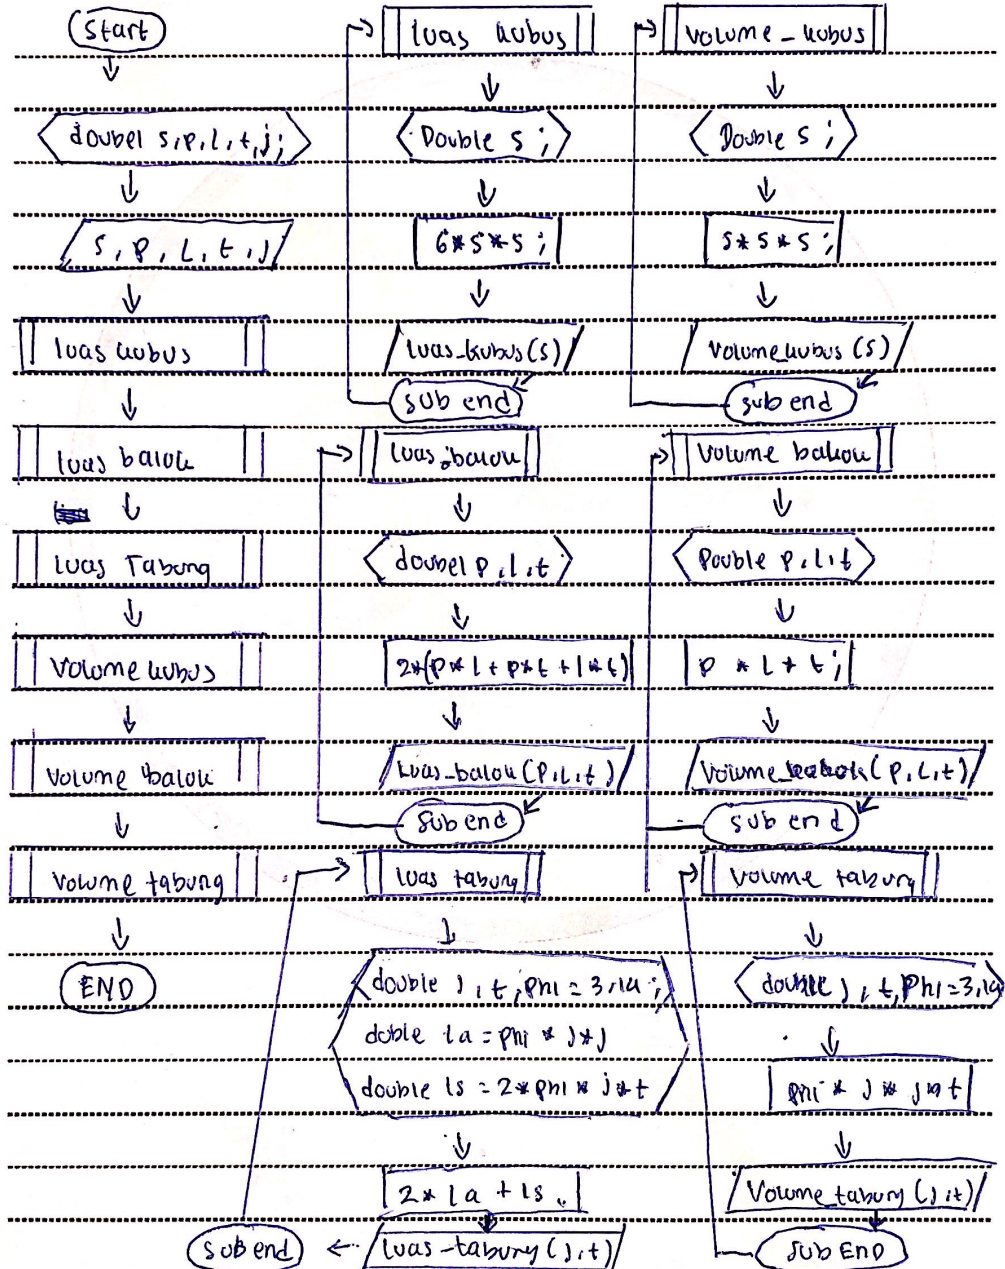 Start
doubel s,p,l,t,j;
s, p, L, t, j
luas kubus
luas balok
luas Tabung
Volume kubus
Volume balok
Volume tabung
END
luas kubus
Double s ;
6*s*s ;
luas_kubus(s)
sub end
luas balok
doubel p,l,t
2*(p*l+p*t+l*t)
luas_balok(p,l,t)
Sub end
luas tabung
double j,t,phi=3,14;
doble la=phi*j*j
double ls=2*phi*j*t
2*la+ls
luas-tabung(j,t)
sub end
Volume_kubus
Double s ;
s*s*s ;
Volume_kubus(s)
sub end
Volume balok
Double p,l,t
p *l*t;
sub end
Volume tabung
double j,t,phi=3,14
phi*j*j*t
Volume_tabung(j,t)
sub END